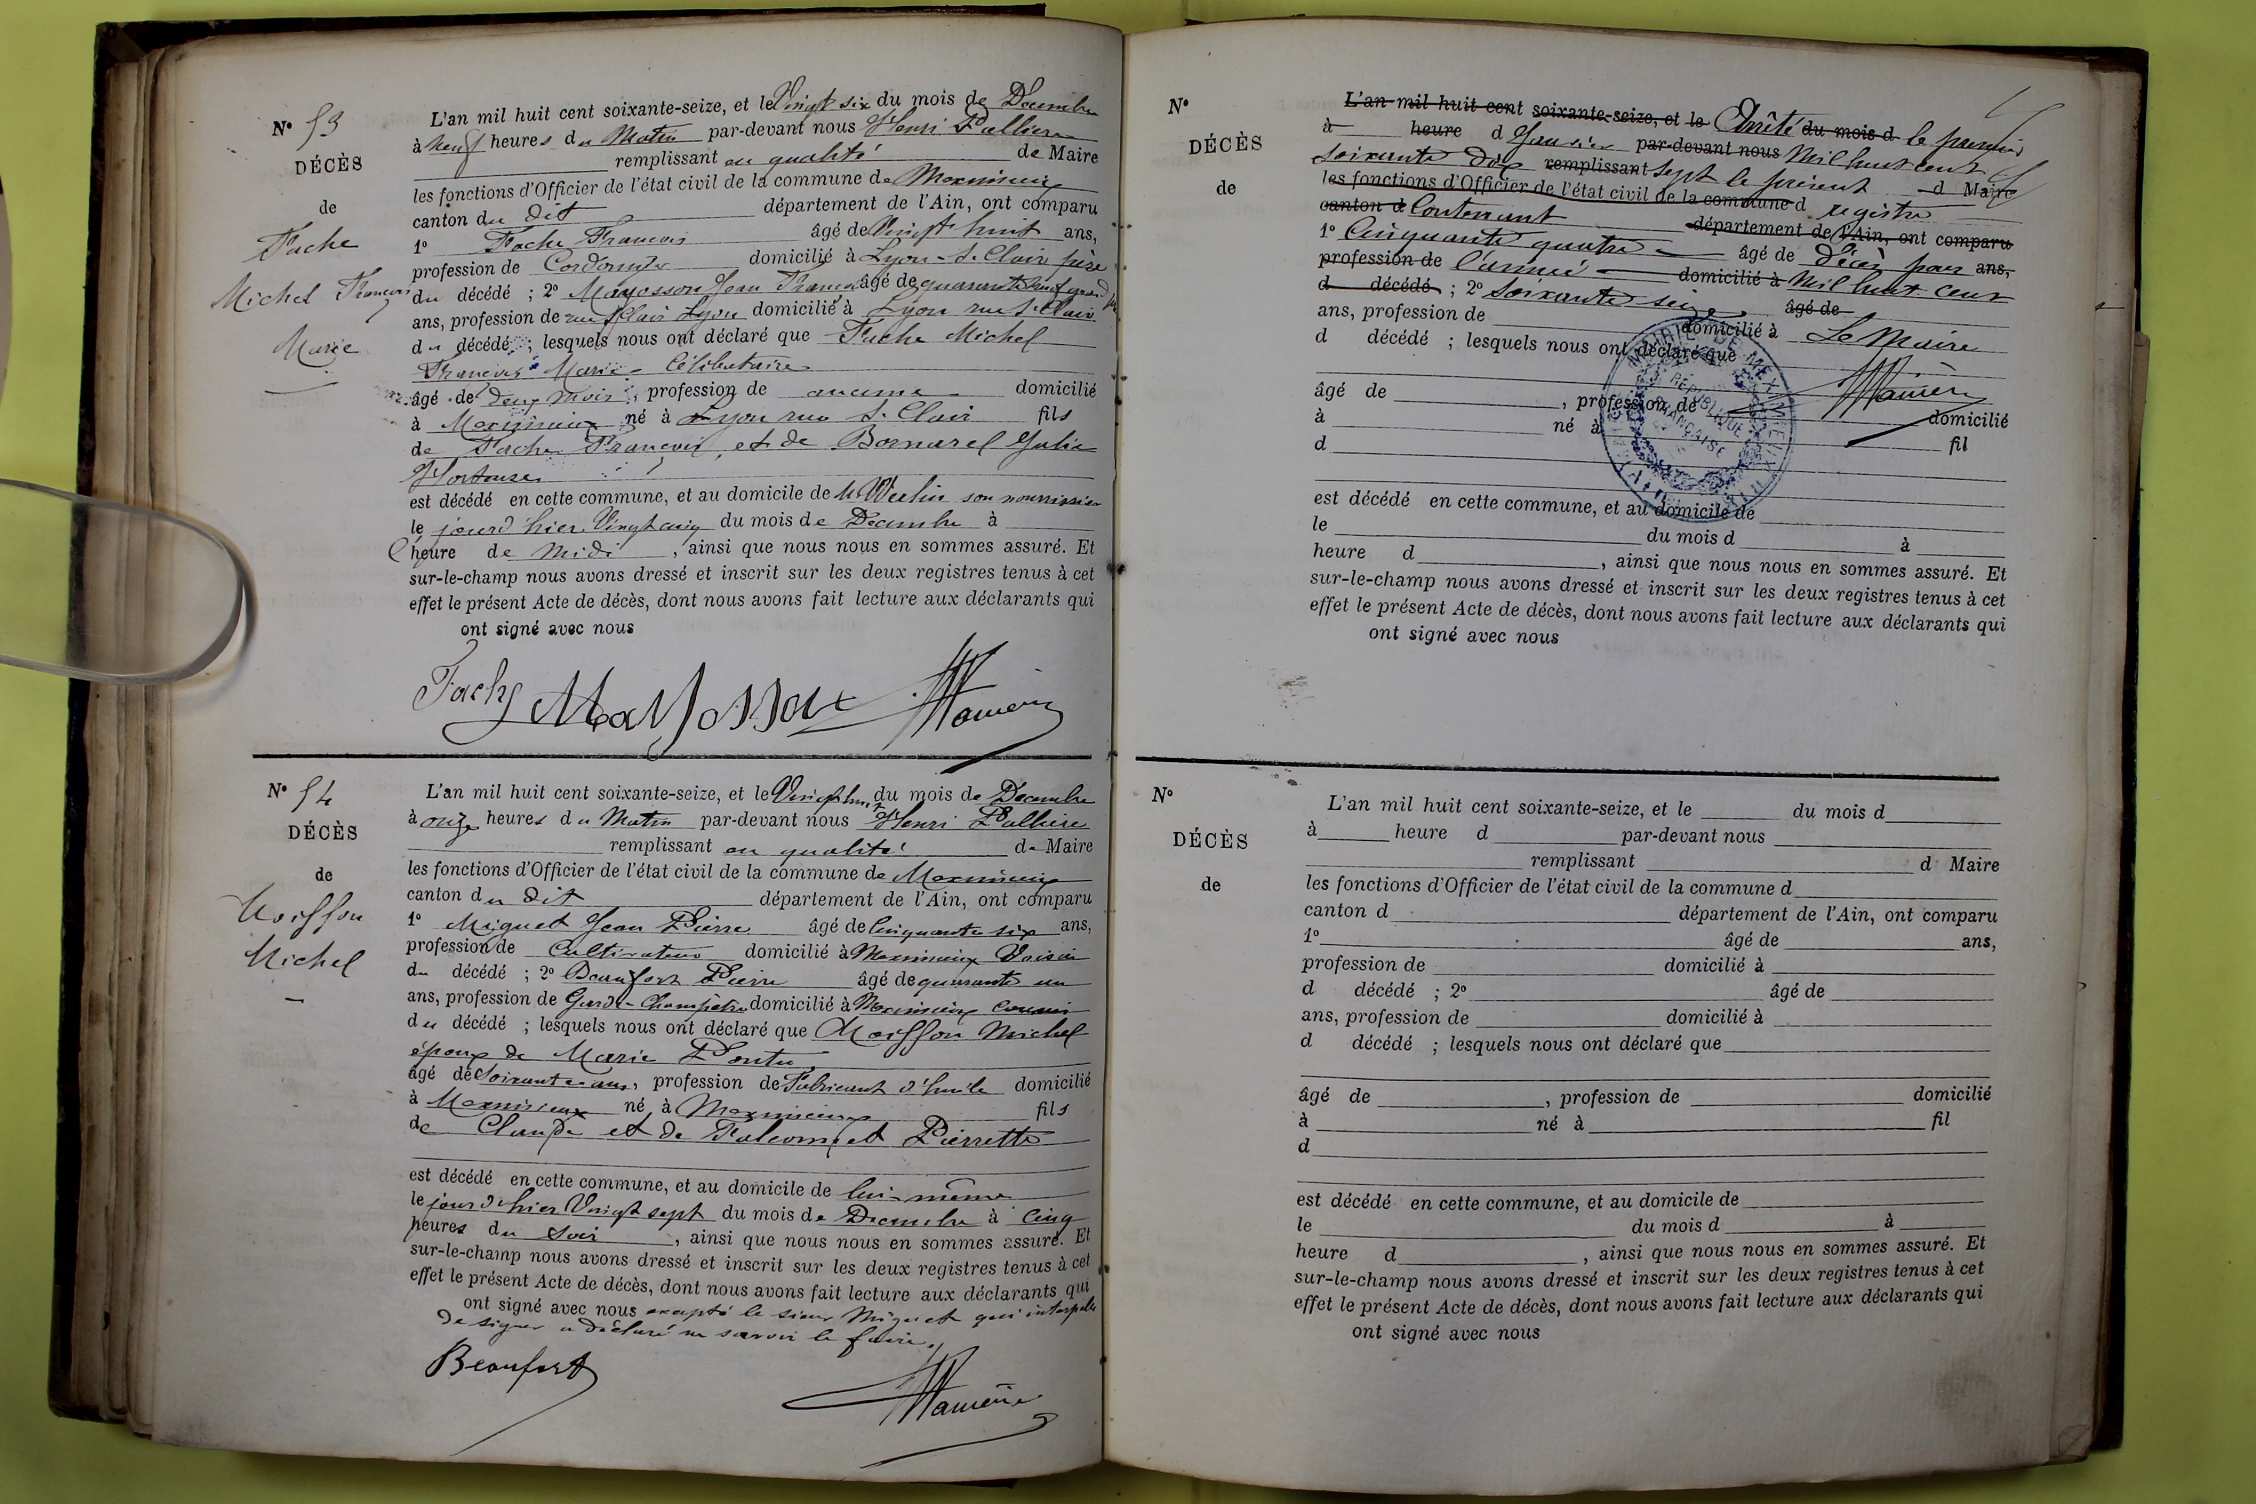 N° 53
DÉCÈS
de
Fache
Michel François
Marie
L'an mil huit cent soixante-seize, et le Vingt six du mois de Décembre
à neuf heures du Matin par-devant nous Henri
remplissant en qualité de Maire
les fonctions d'Officier de l'état civil de la commune de Meximieux
canton du dit département de l'Ain, ont comparu
1° Fache François âgé de Vingt huit ans,
profession de Cordonnier domicilié à Lyon St Clair père
du décédé ; 2° Mayosson Jean François âgé de quarante neuf grand
ans, profession de rue St Clair Lyon domicilié à Lyon rue St Clair
du décédé ; lesquels nous ont déclaré que Fache Michel
François Marie Célibataire
âgé de deux mois, profession de aucune domicilié
à Meximieux né à Lyon rue St Clair fils
de Fache François et de Bornarel Julie
Hortense
est décédé en cette commune, et au domicile de son nourricier
le jourd'hier Vingt cinq du mois de Décembre à
heure de midi, ainsi que nous nous en sommes assuré. Et
sur-le-champ nous avons dressé et inscrit sur les deux registres tenus à cet
effet le présent Acte de décès, dont nous avons fait lecture aux déclarants qui
ont signé avec nous
Fache Mayosson
N° 54
DÉCÈS
de
Moisson
Michel
L'an mil huit cent soixante-seize, et le Vingt huit du mois de Décembre
à onze heures du Matin par-devant nous Henri
remplissant en qualité de Maire
les fonctions d'Officier de l'état civil de la commune de Meximieux
canton du dit département de l'Ain, ont comparu
1° Miguet Jean Pierre âgé de Cinquante six ans,
profession de Cultivateur domicilié à Meximieux Voisin
du décédé ; 2° Beaufort Pierre âgé de quarante un
ans, profession de Garde-Champêtre domicilié à Meximieux cousin
du décédé ; lesquels nous ont déclaré que Moisson Michel
époux de Marie
âgé de Soixante ans, profession de Fabricant d'huile domicilié
à Meximieux né à Meximieux fils
de Claude et de Falconnet Pierrette
est décédé en cette commune, et au domicile de lui-même
le jourd'hier Vingt sept du mois de Décembre à cinq
heures du Soir, ainsi que nous nous en sommes assuré. Et
sur-le-champ nous avons dressé et inscrit sur les deux registres tenus à cet
effet le présent Acte de décès, dont nous avons fait lecture aux déclarants qui
ont signé avec nous excepté le sieur Miguet qui interpellé
de signer a déclaré ne savoir le faire.
Beaufort
N°
DÉCÈS
de
L'an mil huit cent soixante-seize, et le Arrêté du mois d le premier
à heure d Janvier par-devant nous Mil huit cent
soixante dix remplissant sept le présent d Maire
les fonctions d'Officier de l'état civil de la commune d registre
canton d Contenant département de l'Ain, ont comparu
1° Cinquante quatre âgé de décès pour ans,
profession de l'année domicilié à Mil huit cent
d décédé ; 2° soixante seize âgé de
ans, profession de domicilié à Le Maire
d décédé ; lesquels nous ont déclaré que
MAIRIE DE MEXIMIEUX
RÉPUBLIQUE FRANÇAISE
âgé de , profession de domicilié
à né à fil
d
est décédé en cette commune, et au domicile de
le du mois d à
heure d , ainsi que nous nous en sommes assuré. Et
sur-le-champ nous avons dressé et inscrit sur les deux registres tenus à cet
effet le présent Acte de décès, dont nous avons fait lecture aux déclarants qui
ont signé avec nous
N°
DÉCÈS
de
L'an mil huit cent soixante-seize, et le du mois d
à heure d par-devant nous
remplissant d Maire
les fonctions d'Officier de l'état civil de la commune d
canton d département de l'Ain, ont comparu
1° âgé de ans,
profession de domicilié à
d décédé ; 2° âgé de
ans, profession de domicilié à
d décédé ; lesquels nous ont déclaré que
âgé de , profession de domicilié
à né à fil
d
est décédé en cette commune, et au domicile de
le du mois d à
heure d , ainsi que nous nous en sommes assuré. Et
sur-le-champ nous avons dressé et inscrit sur les deux registres tenus à cet
effet le présent Acte de décès, dont nous avons fait lecture aux déclarants qui
ont signé avec nous